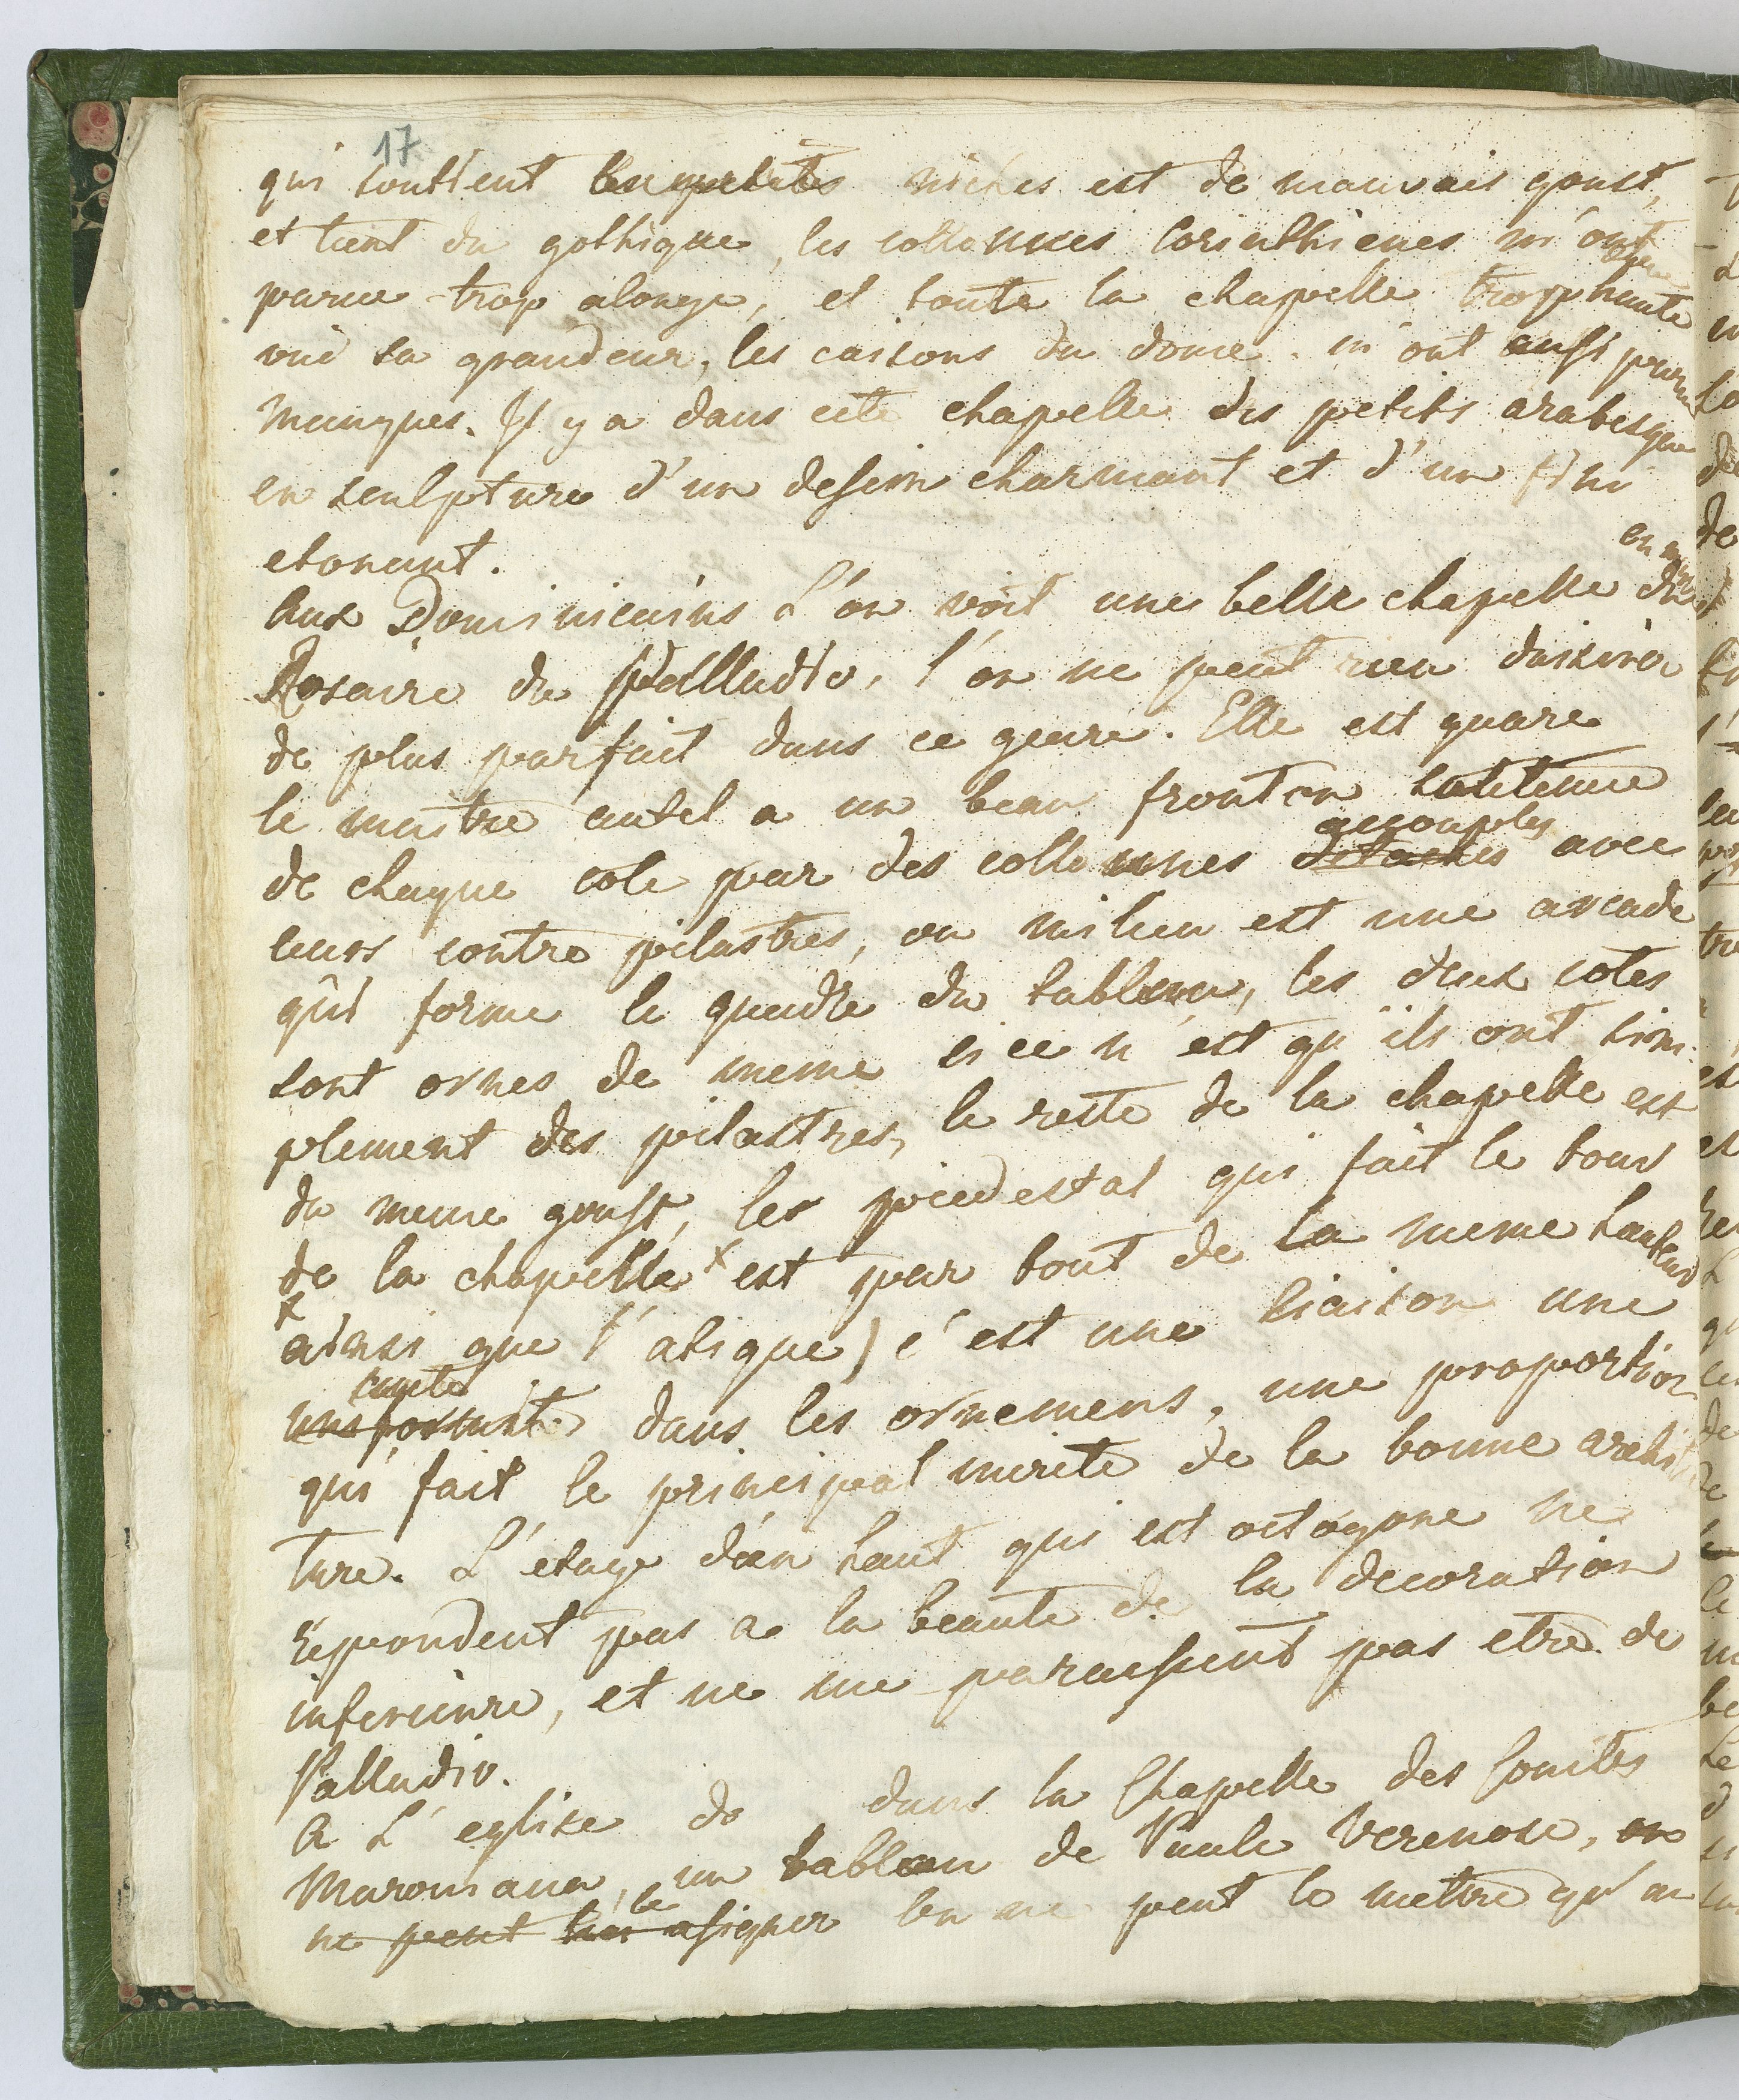 17
qui soutient les petites niches est de mauvais goust,
et tient du gothique, les collonnes corinthienes m'ont
parue trop alonge, et toute la chapelle trop haute
vüe sa grandeur, les caisons du dome m'ont aussi paru
maigres. Il y a dans cete chapelle des petits arabesques
en sculpture d'un dessein charmant et d'un fini
etonant.
Aux Dominicains L'on voit une belle chapelle du
Rosaire du Palladio, l'on ne peut rien daisirer
de plus parfait dans ce genre. Elle est quare
le maitre autel a un beau fronton soutenue
accouples
de chaque cote par des collonnes detaches avec
leurs contre pilastres, au milieu est une arcade
qui forme le quadre du tableau, les deux cotes
sont ornes de meme si ce n'est qu'ils ont sim-
plement des pilastres, le reste de la chapelle est
du meme goust, les piedestal qui fait le tour
de la chapelle x est par tout de la meme hauteur
x ainsi que l'atique) c'est une liaison une
dans les ornemens, une proportion
qui fait le principal merite de la bonne archi
ture. L'etage d'an haut qui est octogone ne
repondent pas a la beaute de la decoration
inferieure, et ne me paraissent pas etre de
Palladio.
A L'eglise de dans la Chapelle des Comtes
un tableau de Paule Veronese, on
ne peut le assigner l'on ne peut le mettre qu'au